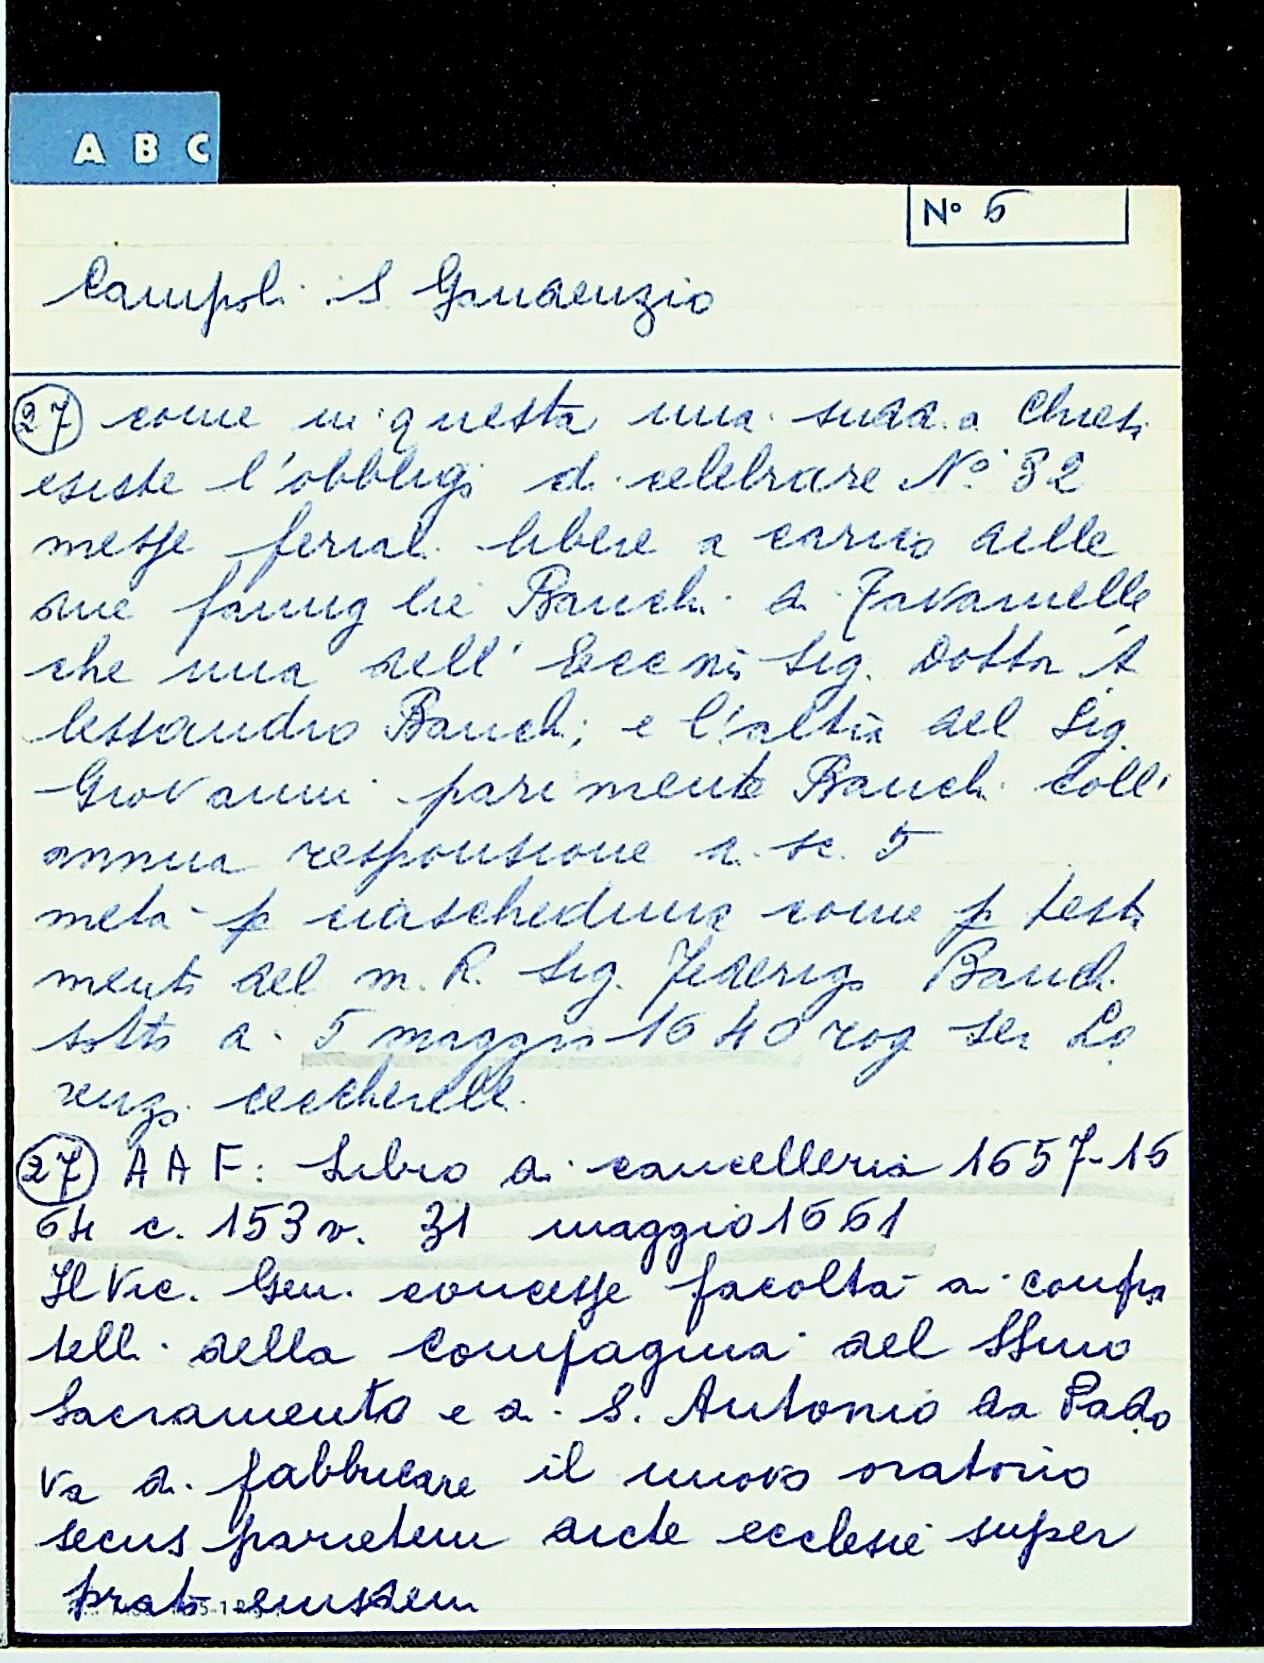 A B C
Nº 6
Campoli S Gaudenzio
27 come in questa mia sudd.a Chiesa
esiste l'obbligo di celebrare Nº 32
messe feriali libere a carico delle
due famiglie Banchi di Tavarnelle
che una dell' Eccmo Sig. Dottor A
lessandro Banchi; e l'altra del Sig.
Giovanni parimente Banchi coll'
annua responsione di sc. 5
metà p ciascheduna come p testa
mento del m. R. Sig. Federigo Banchi
sotto di 5 maggio 1640 rog Ser Lo
renzo Ceccherelli
27 A A F: Libro di cancelleria 1657-16
64 c. 153 v. 31 maggio 1661
Il Vic. Gen. concesse facoltà ai confra
telli della Compagnia del SSmo
Sacramento e di S. Antonio da Pado
va di fabbricare il nuovo oratorio
secus parietem dicte ecclesie super
prato eiusdem